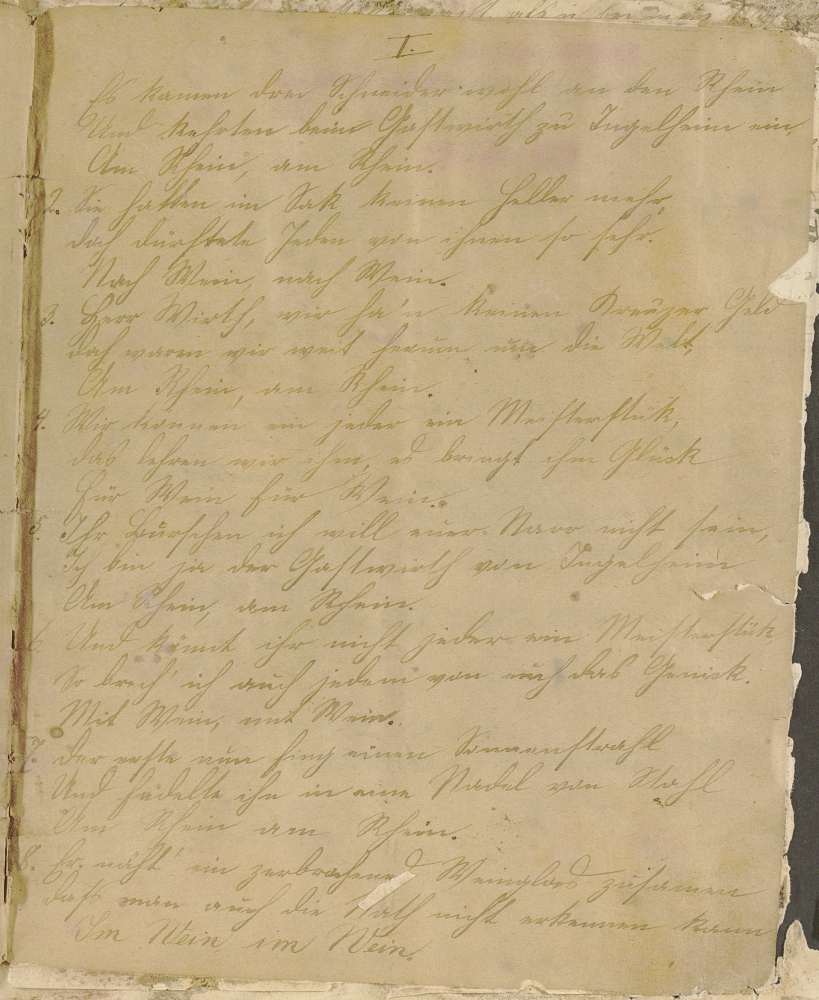 I.
Es kamen drei Schneider wohl an den Rhein
Und kehrten beim Gastwirth zu Ingelheim ein,
Am Rhein, am Rhein.
2. Sie hatten im Sak keinen Heller mehr,
doch dürstete Jeden von ihnen so sehr.
Nach Wein, nach Wein.
3. Herr Wirth, wir ha'n keinen Kreuzer Geld
doch waren wir weit herum um die Welt,
Am Rhein, am Rhein.
4. Wir konnen ein jeder ein Meisterstük,
das lehren wir ihn, es bringt ihm Glück
für Wein für Wein.
5. Ihr Burschen ich will euer Narr nicht sein,
Ich bin ja der Gastwirth von Ingelheim
Am Rhein, am Rhein.
6. Und könnt ihr nicht jeder ein Meisterstük
So brech' ich auch jedem von euch das Genick.
Mit Wein, mit Wein.
7. der erste nun fing einen Sonnenstrahl
Und fädelte ihn in eine Nadel von Stahl
Am Rhein am Rhein.
8. Er näht' ein zerbrochenes Weinglas zusamen
dass man auch die Nath nicht erkennen kann
Im Wein im Wein.